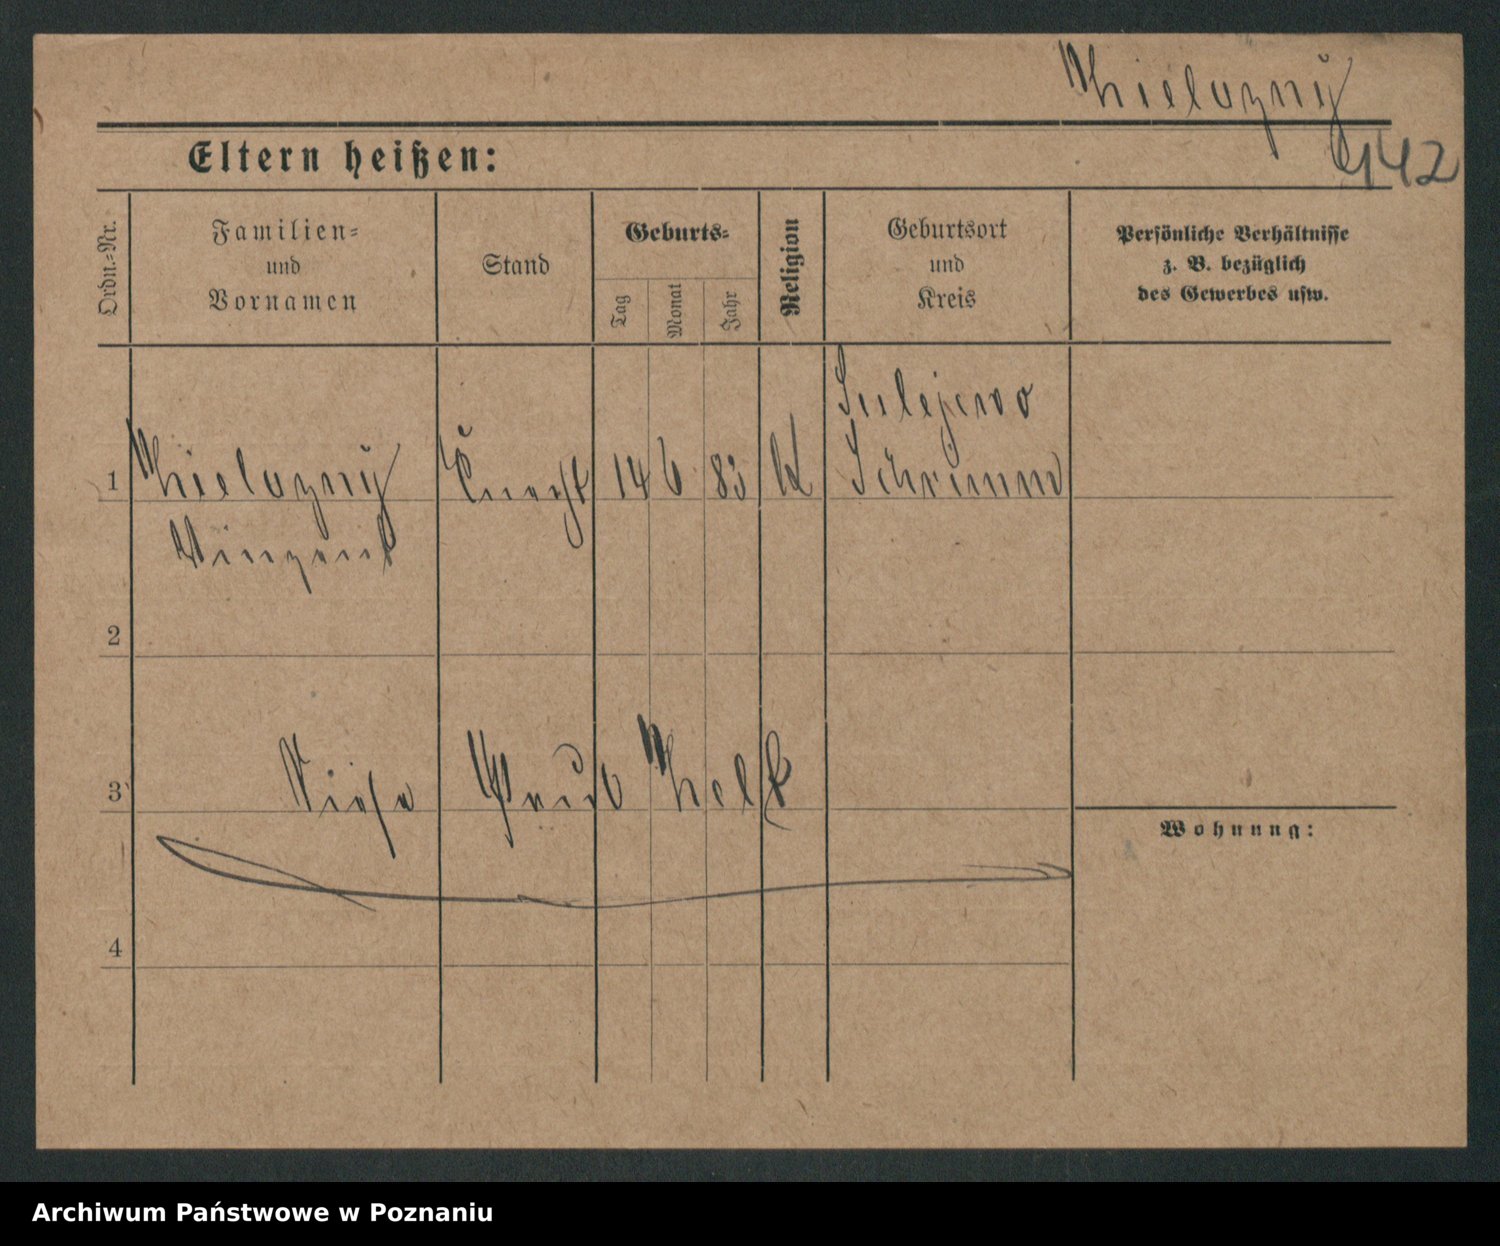 Mielozny
142
Eltern heißen:
Ordn.-Nr.
Familien-
und
Vornamen
Stand
Geburts-
Tag
Monat
Jahr
Religion
Geburtsort
und
Kreis
Persönliche Verhältnisse
z. B. bezüglich
des Gewerbes usw.
Sulejewo
1 Knecht 14 6 83 K Schrimm
Vinzent
2
3 Siehe
4
Wohnung:
Archiwum Państwowe w Poznaniu